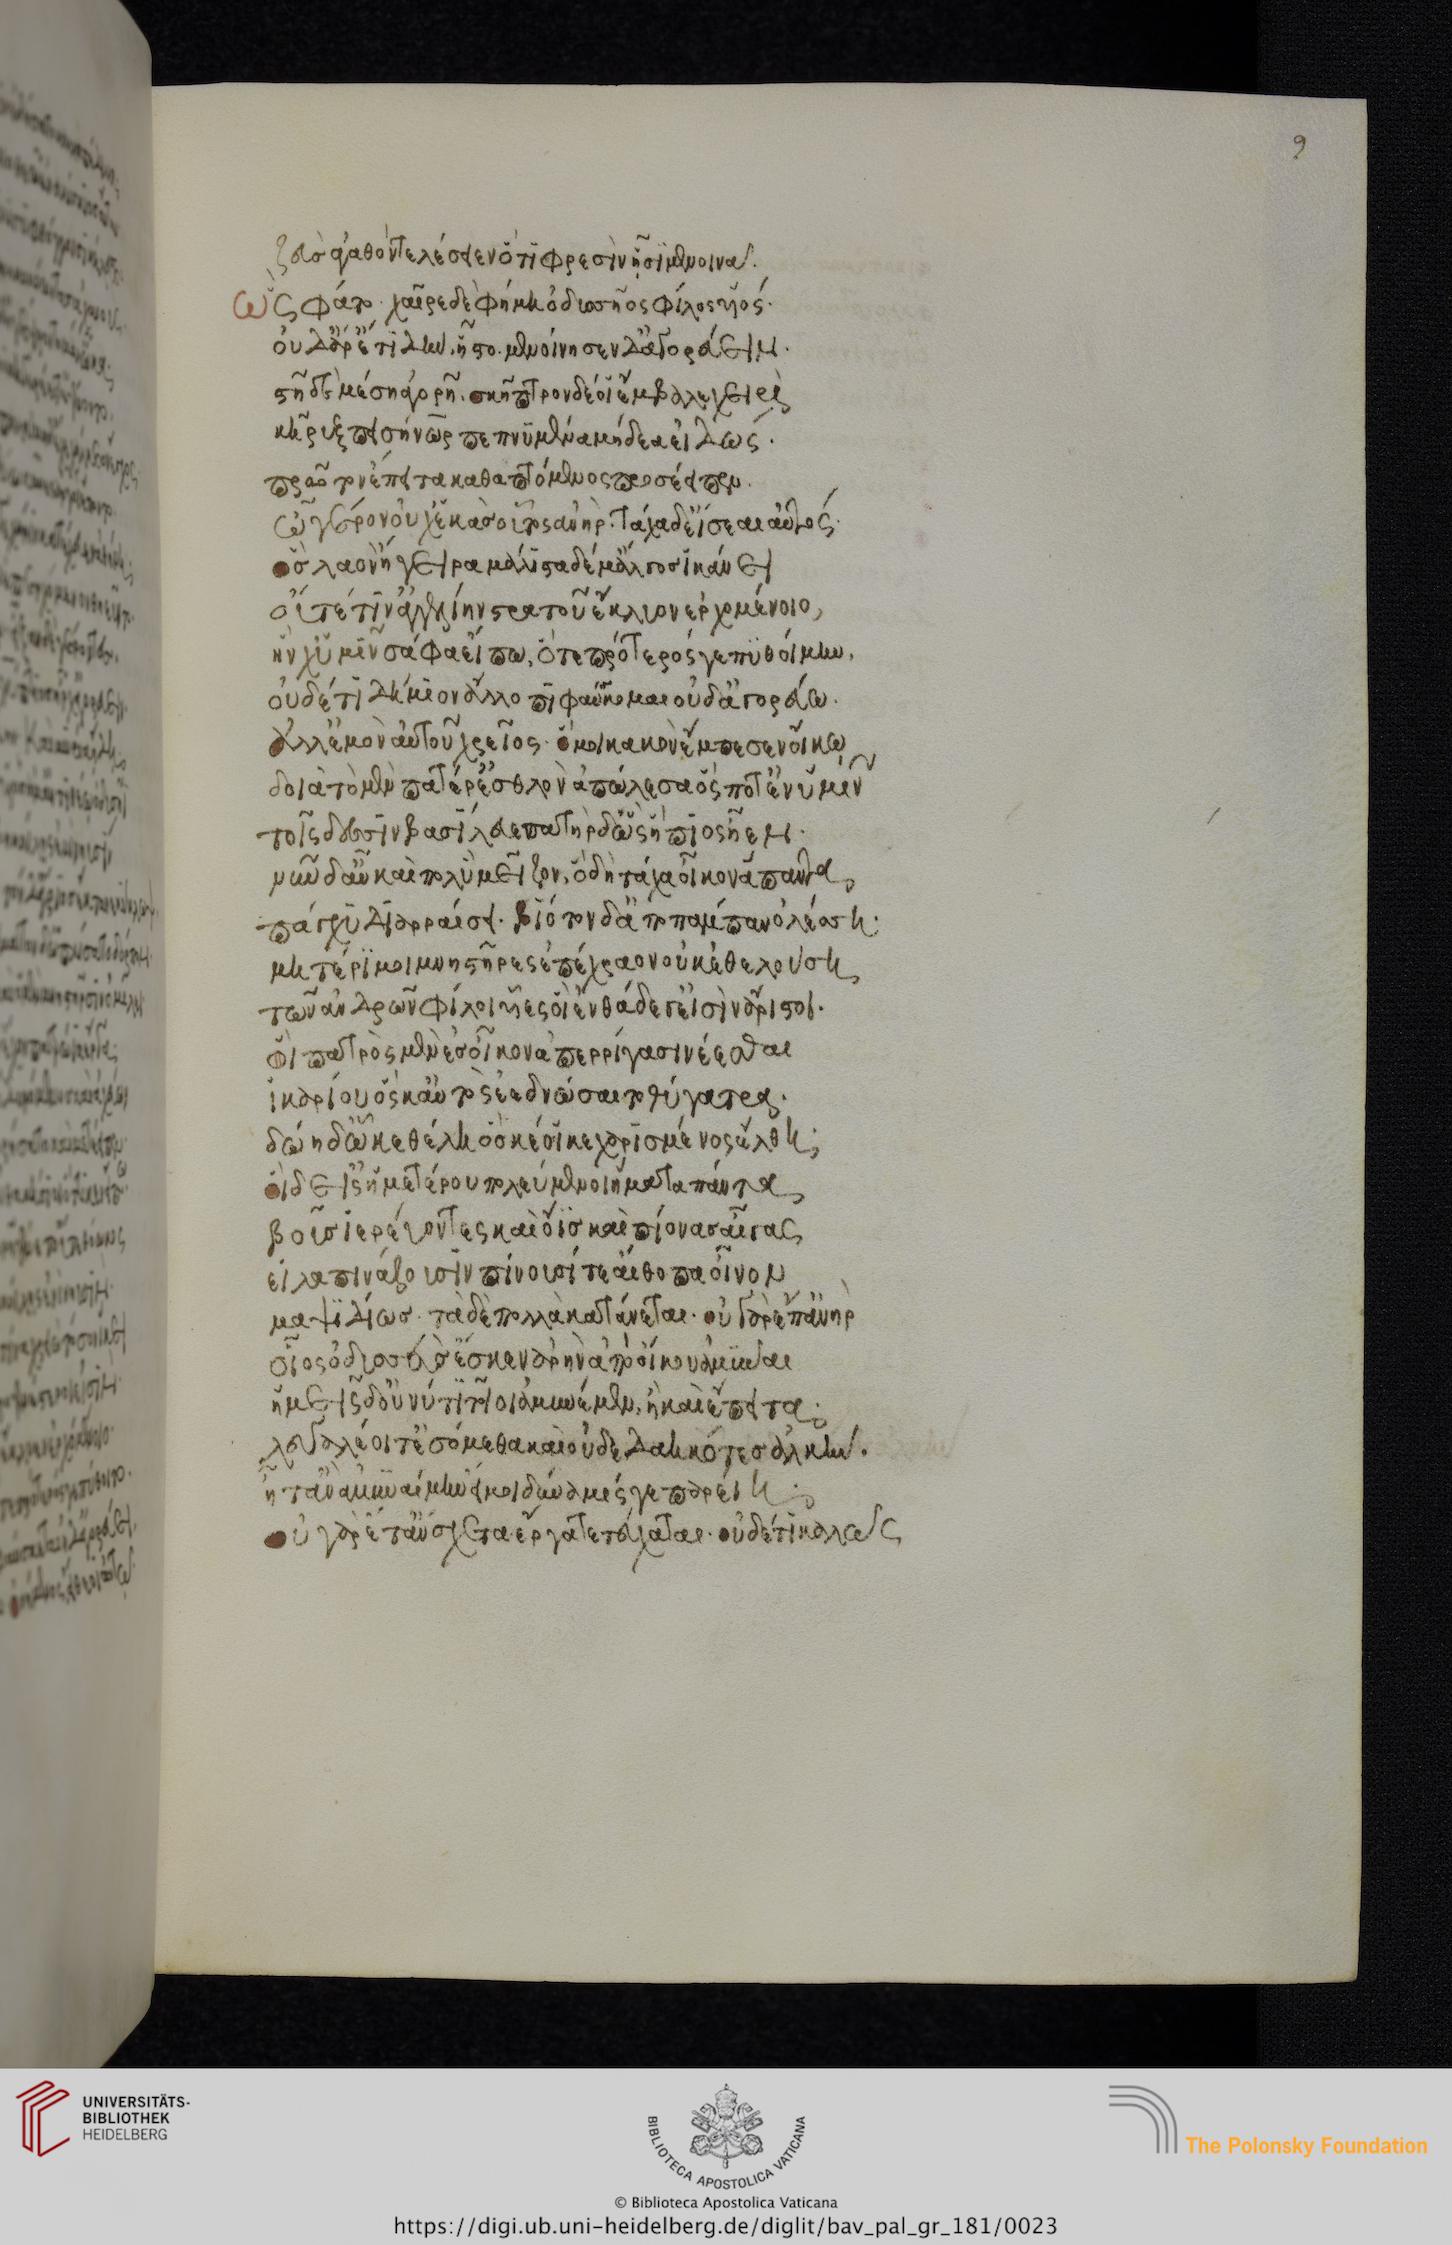 9
ζεὺς ἀγαθὸν τελέσειεν ὅτι φρεσὶν ᾗσι μενοινᾷ.
ὣς φάτο. χαῖρε δὲ φήμῃ ὀδυσῆος φίλος υἱός.
οὐδ' ἄρ' ἔτι δὴν ἧστο. μενοίνησεν δ' ἀγορεύειν.
στῆ δὲ μέσῃ ἀγορῇ. σκῆπτρον δέ οἱ ἔμβαλε χειρὶ
κῆρυξ πεισήνωρ πεπνυμένα μήδεα εἰδώς.
πρῶτον ἔπειτα καθαπτόμενος προσέειπεν.
ὦ γέρον οὐχ ἑκὰς οὗτος ἀνὴρ. τάχα δ' εἴσεαι αὐτός.
ὃς λαὸν ἤγειρα μάλιστα δέ μ' ἄλγος ἱκάνει
οὔτέ τιν' ἀγγελίην στρατοῦ ἔκλυον ἐρχομένοιο,
ἥν χ' ὑμῖν σάφα εἴπω, ὅτε πρότερός γε πυθοίμην,
οὐδέ τι δήμιον ἄλλο πιφαύσκομαι οὐδ' ἀγορεύω.
ἀλλ' ἐμὸν αὐτοῦ χρεῖος. ὅ μοι κακὸν ἔμπεσεν οἴκῳ
δοιὰ τὸ μὲν πατέρ' ἐσθλὸν ἀπώλεσα ὅς ποτ' ἐν ὑμῖν
τοῖσδεσιν βασίλευε πατὴρ δ' ὣς ἤπιος ἦεν.
νῦν δ' αὖ καὶ πολὺ μεῖζον, ὃ δὴ τάχα οἶκον ἅπαντα,
πάγχυ διαρραίσει. βίοτον δ' ἄπο πάμπαν ὀλέσσῃ.
μητέρι μοι μνηστῆρες ἐπέχραον οὐκ ἐθελούσῃ,
τῶν ἀνδρῶν φίλοι υἷες οἳ ἐνθάδε γ' εἰσὶν ἄριστοι.
οἳ πατρὸς μὲν ἐς οἶκον ἀπερρίγασιν έεσθαι
ἰκαρίου ὅς κ' αὐτὸς ἐεδνώσαιτο θύγατρα.
δώῃ δ' ᾧ κ' ἐθέλῃ ὅς κέ οἱ κεχαρισμένος ἔλθῃ;
οἱ δ' εἰς ἡμετέρου πωλεύμενοι ἤματα πάντα,
βοῦς ἱερεύοντες καὶ ὄϊς καὶ πίονας αἶγας,
εἰλαπινάζουσιν πίνουσί τε αἴθοπα οἶνον
μαψιδίως. τὰ δὲ πολλὰ κατάνεται. οὐ γὰρ ἔπ' ἀνὴρ
οἷος ὀδυσσεὺς ἔσκεν ἀρὴν ἀπὸ οἴκου ἀμῦναι
ἡμεῖς δ' οὔ νύ τι τοῖοι ἀμυνέμεν, ἢ καὶ ἔπειτα.
λευγαλέοι τ' ἐσόμεθα καὶ οὐ δεδαηκότες ἀλκήν.
ἦ τ' ἂν ἀμυναίμην εἴ μοι δύναμίς γε παρείη.
οὐ γὰρ ἔτ' ἀνσχετα ἔργα τετεύχαται. οὐδέ τι καλῶς
UNIVERSITÄTS-
BIBLIOTHEK
HEIDELBERG
BIBLIOTECA APOSTOLICA VATICANA
© Biblioteca Apostolica Vaticana
The Polonsky Foundation
https://digi.ub.uni-heidelberg.de/diglit/bav_pal_gr_181/0023